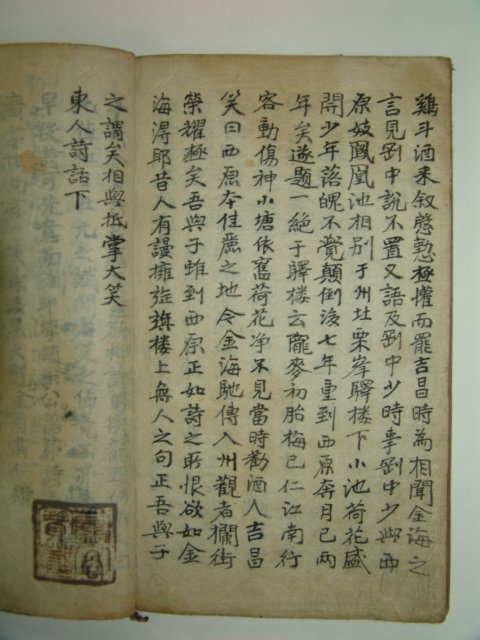 鷄斗酒来叙慇懃極懽而罷吉昌時為相聞金海之
言見剛中說不置又語及剛中少時事剛中少與西
原妓鳳凰池相別于州北栗峯驛樓下小池荷花盛
開少年落魄不覺顛倒後七年重到西原奔月已兩
年矣遂題一絶于驛樓云隴麥初胎梅已仁江南行
客動傷神小塘依舊荷花淨不見當時勸酒人吉昌
笑曰西原本佳麗之地今金海馳傳入州觀者攔街
榮耀極矣吾與子雖到西原正如詩之所恨欲如金
海淂耶昔人有謾擁旌旗樓上無人之句正吾與子
之謂矣相與抵掌大笑
東人詩話下